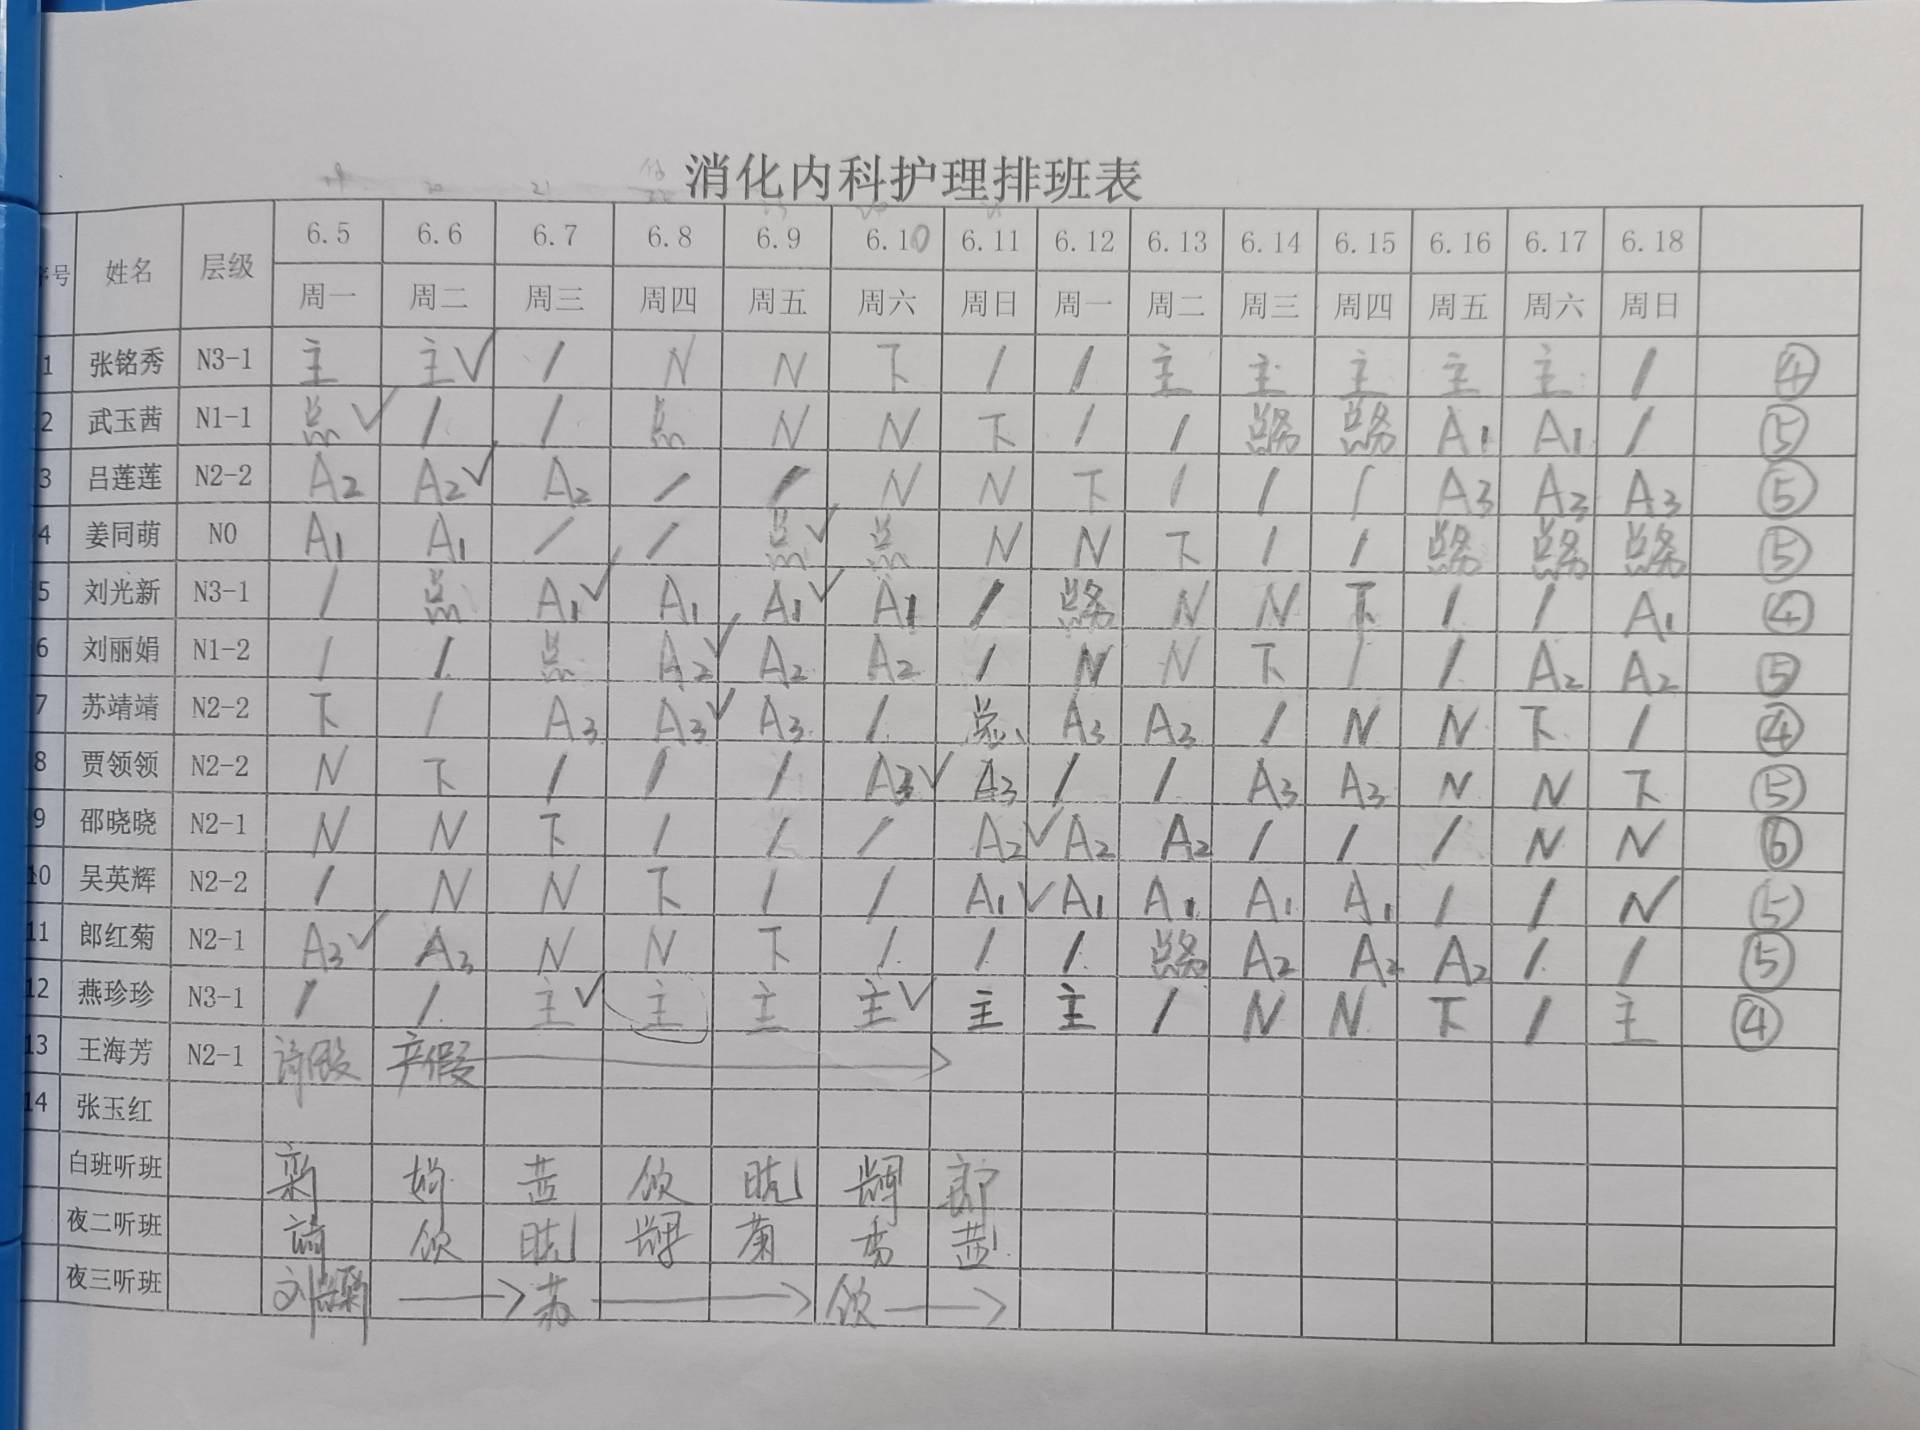 消化内科护理排班表
序号 姓名 层级 6.5 6.6 6.7 6.8 6.9 6.10 6.11 6.12 6.13 6.14 6.15 6.16 6.17 6.18
周一 周二 周三 周四 周五 周六 周日 周一 周二 周三 周四 周五 周六 周日
1 张铭秀 N3-1 主 主√ / N N 下 / / 主 主 主 主 主 / ④
2 武玉茜 N1-1 总√ / / 总 N N 下 / / 总务 总务 A1 A1 / ⑤
3 吕莲莲 N2-2 A2 A2√ A2 / / N N 下 / / / A3 A3 A3 ⑤
4 姜同萌 N0 A1 A1 / / 总√ 总 N N 下 / / 总务 总务 总务 ⑤
5 刘光新 N3-1 / 总 A1√ A1 A1√ A1 / 总务 N N 下 / / A1 ④
6 刘丽娟 N1-2 / / 总 A2√ A2 A2 / N N 下 / / A2 A2 ⑤
7 苏靖靖 N2-2 下 / A3 A3√ A3 / 总 A3 A3 / N N 下 / ④
8 贾领领 N2-2 N 下 / / / A3√ A3 / / A3 A3 N N 下 ⑤
9 邵晓晓 N2-1 N N 下 / / / A2√ A2 A2 / / / N N ⑥
10 吴英辉 N2-2 / N N 下 / / A1√ A1 A1 A1 A1 / / N ⑤
11 郎红菊 N2-1 A3√ A3 N N 下 / / / 总务 A2 A2 A2 / / ⑤
12 燕珍珍 N3-1 / / 主√ 主 主 主√ 主 主 / N N 下 / 主 ④
13 王海芳 N2-1 产假
14 张玉红
白班听班 新 娟 茜 领 晓 辉 郎
夜二听班 靖 领 晓 辉 菊 秀 茜
夜三听班 刘新 苏 领